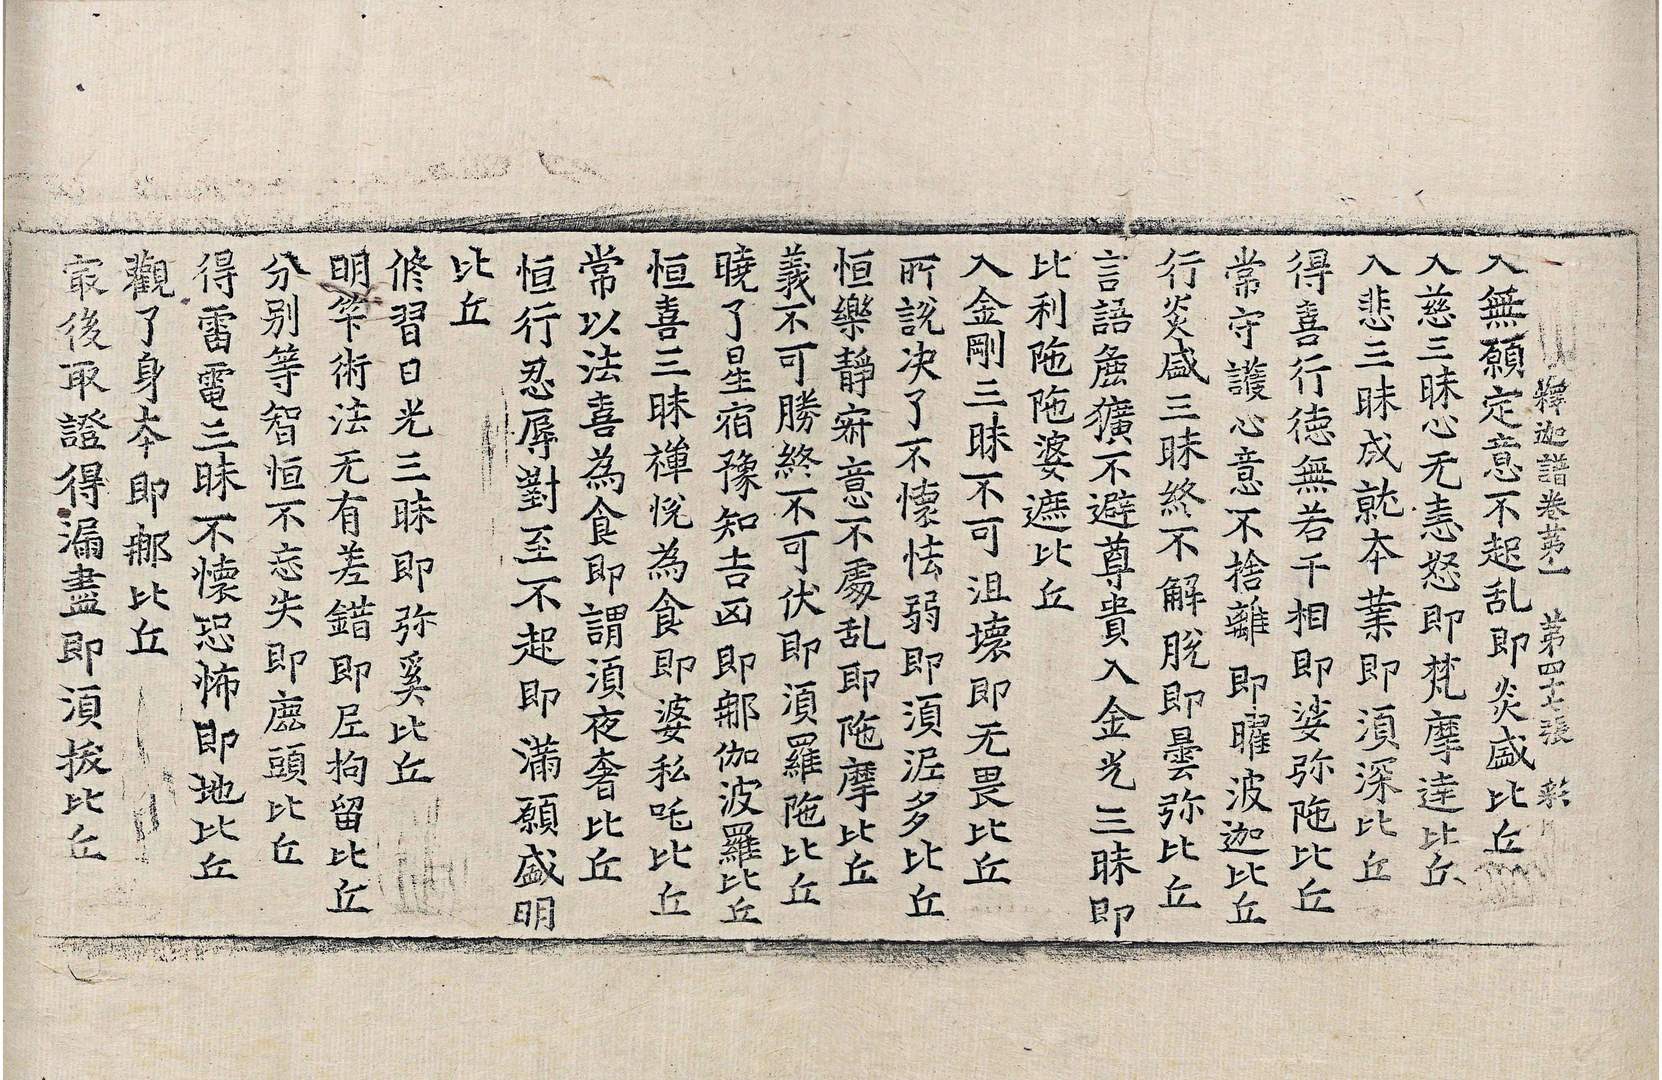 釋迦譜卷第一 第四十七張 彩
入無願定意不起乱即炎盛比丘
入慈三昧心无恚怒即梵摩達比丘
入悲三昧成就夲業即湏深比丘
得喜行德無若干相即娑弥陁比丘
常守護心意不捨離即曜波迦比丘
行炎盛三昧終不解脫即曇弥比丘
言語麁獷不避尊貴入金光三昧即
比利陁陁婆遮比丘
入金剛三昧不可沮壞即无畏比丘
所說决了不懷怯弱即湏泥多比丘
恒樂靜㝛意不處乱即陁摩比丘
義不可勝終不可伏即湏羅陁比丘
曉了星宿豫知吉凶即那伽波羅比丘
恒喜三昧禪悅為食即婆私吒比丘
常以法喜為食即謂湏夜奢比丘
恒行忍辱對至不起即滿願盛明
比丘
修習日光三昧即弥奚比丘
明筭術法无有差錯即尼拘留比丘
分别等智恒不忘失即鹿頭比丘
得雷電三昧不懷恐怖即地比丘
觀了身夲即那比丘
㝡後取證得漏盡即湏拔比丘